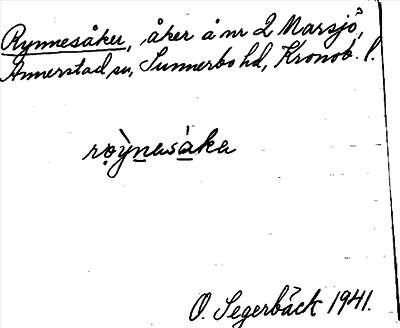 Rynnesåker, åker å nr 2 Marsjö,
Annerstad sn, Sunnerbo hd, Kronob. l.
røỳnasàka
O. Segerbäck 1941.